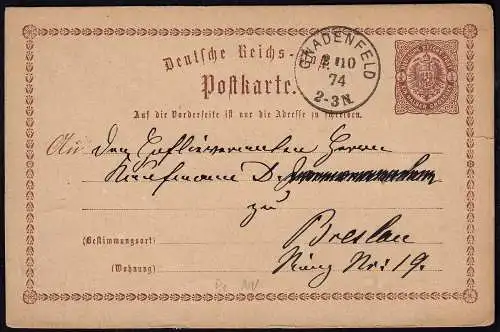 Deutsche Reichs-
Postkarte.
GNADENFELD
10
74
2-3N.
Auf die Vorderseite ist nur die Adresse zu schreiben.
An den Herrn
Kaufmann D.
zu
(Bestimmungsort)
Breslau
(Wohnung)
Ring Nr: 19.